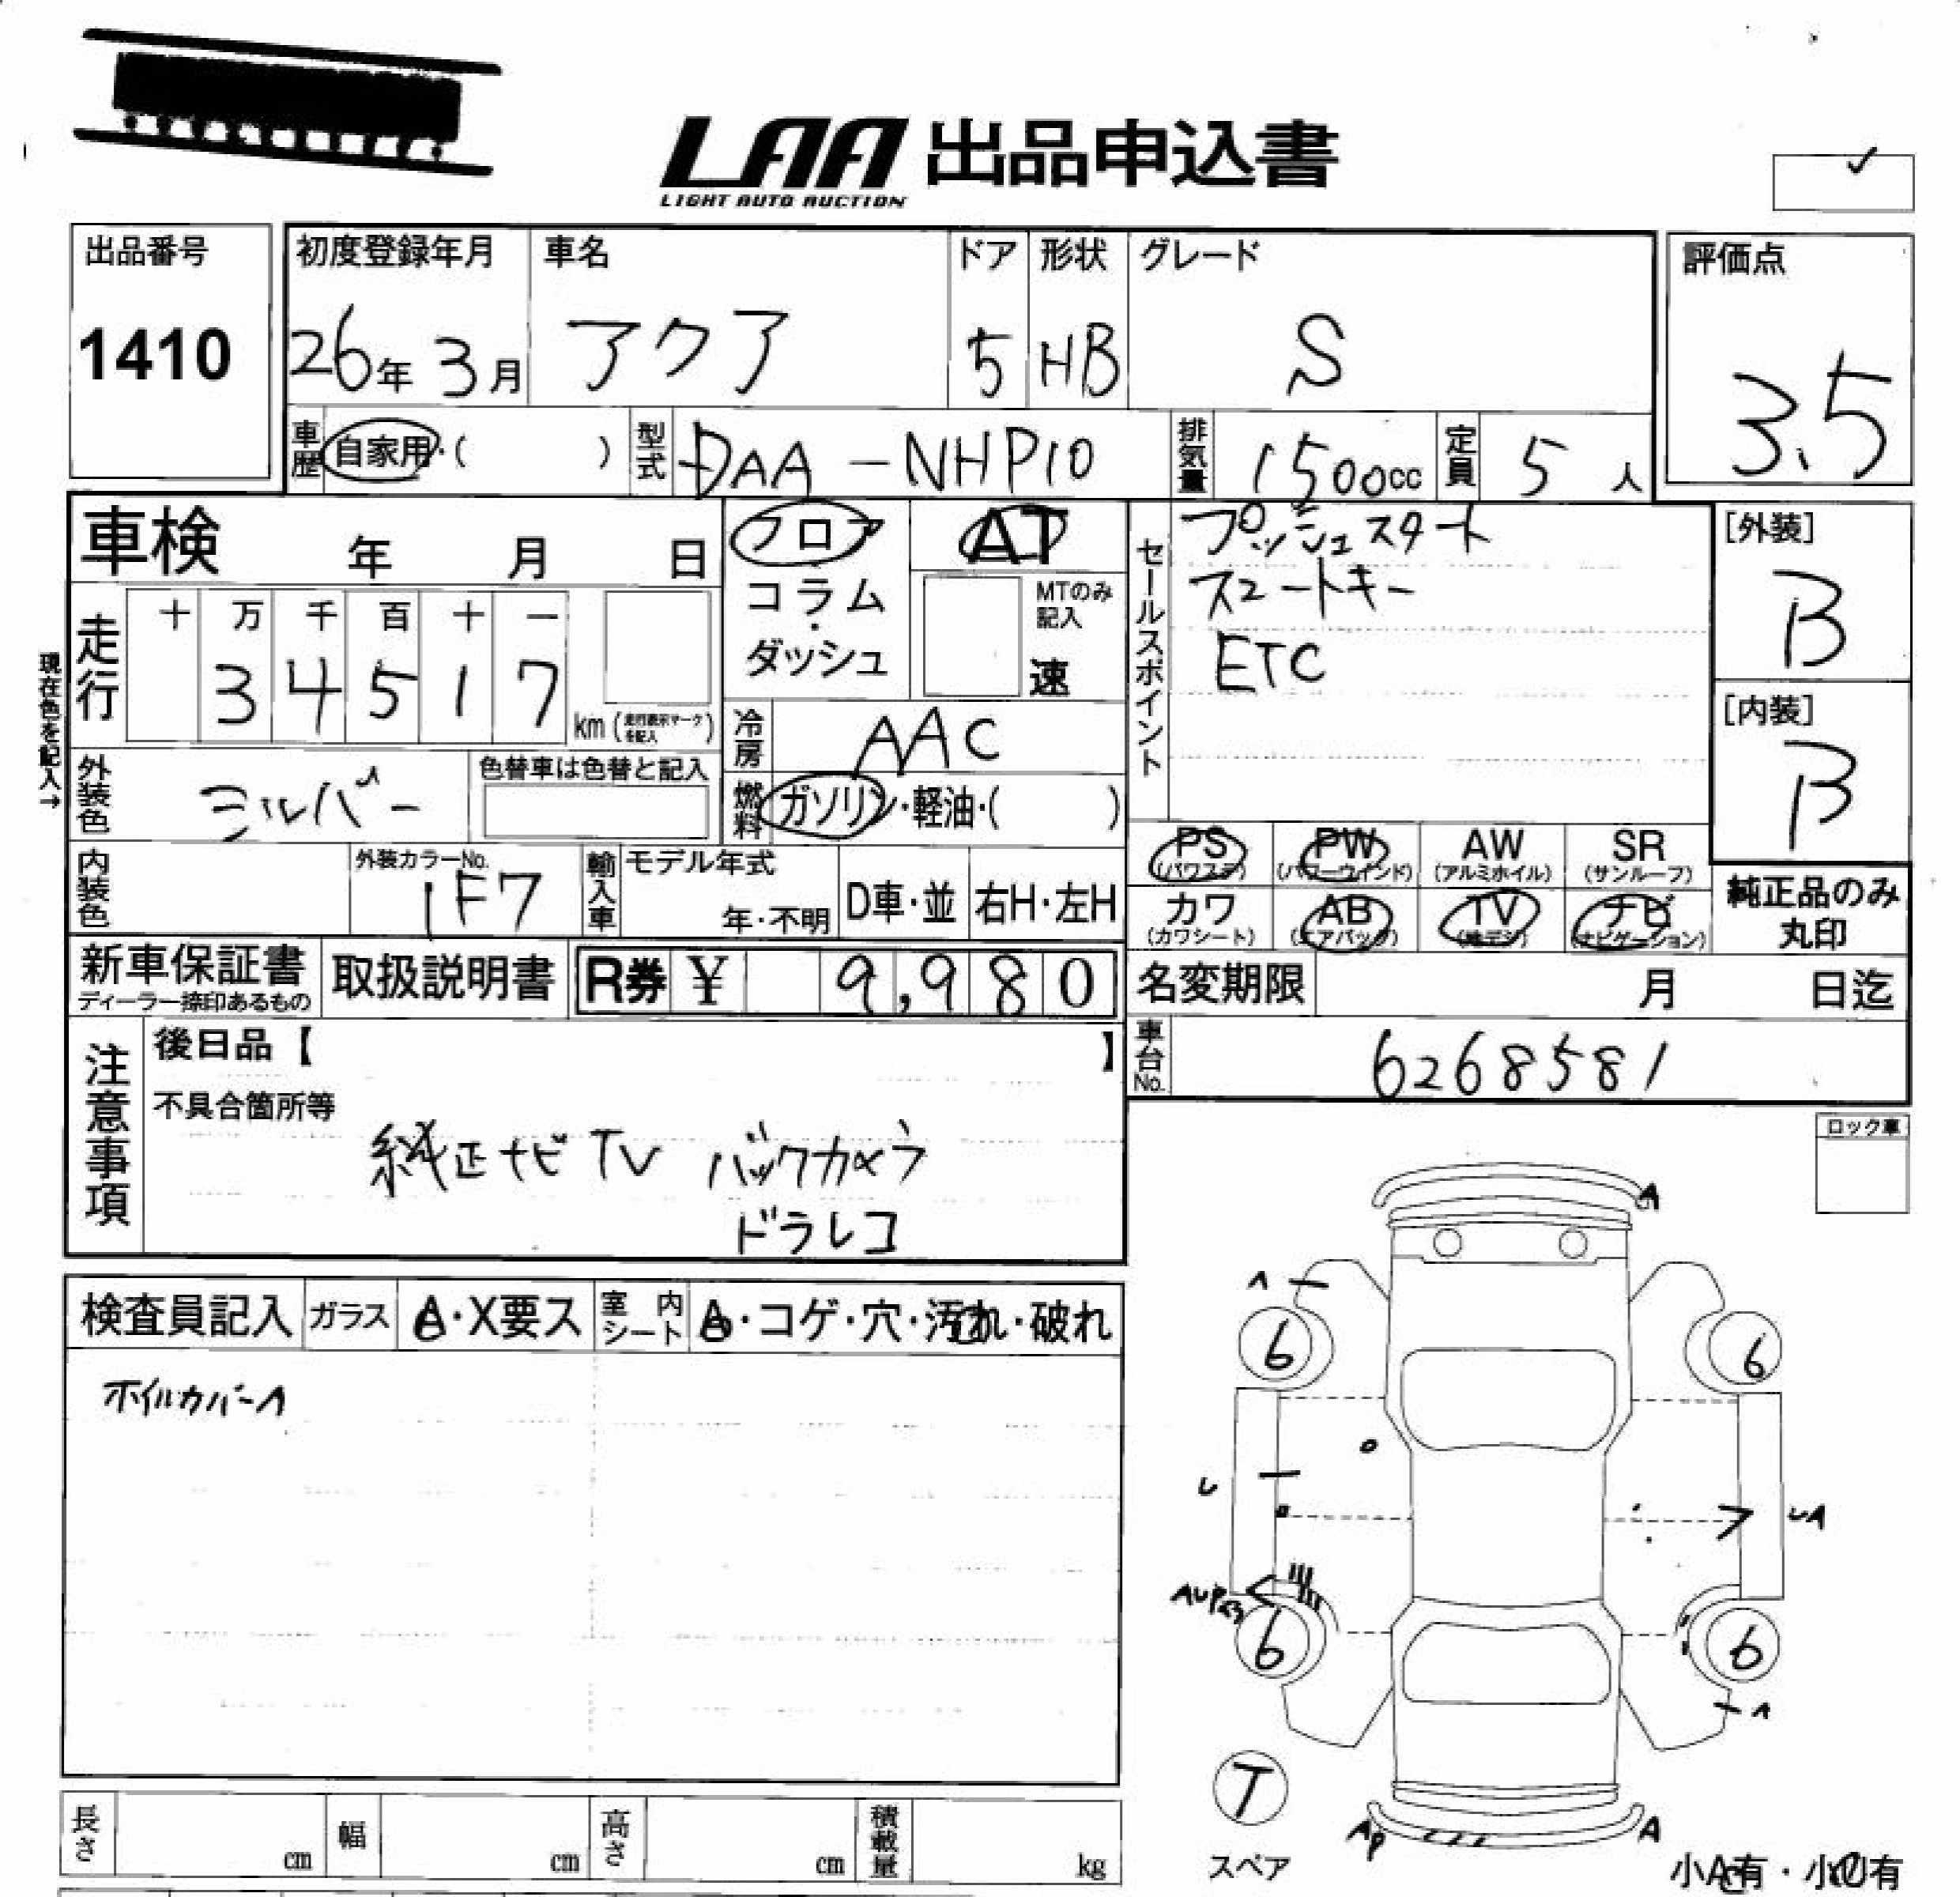 LAA 出品申込書
LIGHT AUTO AUCTION
出品番号 初度登録年月 車名 ドア 形状 グレード 評価点
1410 26年 3月 アクア 5 HB S 3.5
車歴 自家用・( ) 型式 DAA-NHP10 排気量 1500cc 定員 5人
車検 年 月 日 フロア AT セールスポイント プッシュスタート [外装]
コラム・ダッシュ MTのみ記入 速 スマートキー B
現在色を記入→ 走行 十 万 千 百 十 一 ETC
3 4 5 1 7 km (走行表示マークを記入) 冷房 AAC [内装]
外装色 シルバー 色替車は色替と記入 燃料 ガソリン・軽油・( ) B
内装色 外装カラーNo. 1F7 輸入車 モデル年式 年・不明 D車・並 右H・左H
PS (パワステ) PW (パワーウインド) AW (アルミホイル) SR (サンルーフ)
カワ (カワシート) AB (エアバッグ) TV (地デジ) ナビ (ナビゲーション) 純正品のみ丸印
新車保証書 ディーラー捺印あるもの 取扱説明書 R券 ¥ 9,980 名変期限 月 日迄
注意事項 後日品【 】 車台No. 6268581
不具合箇所等
純正ナビ TV バックカメラ
ドラレコ
ロック車
検査員記入 ガラス A・X要ス 室内シート A・コゲ・穴・汚れ・破れ
ホイルカバーA
A
A
6 6
U UA
AUP
6 6
A
T
スペア
AP A
小A有・小U有
長さ cm 幅 cm 高さ cm 積載量 kg